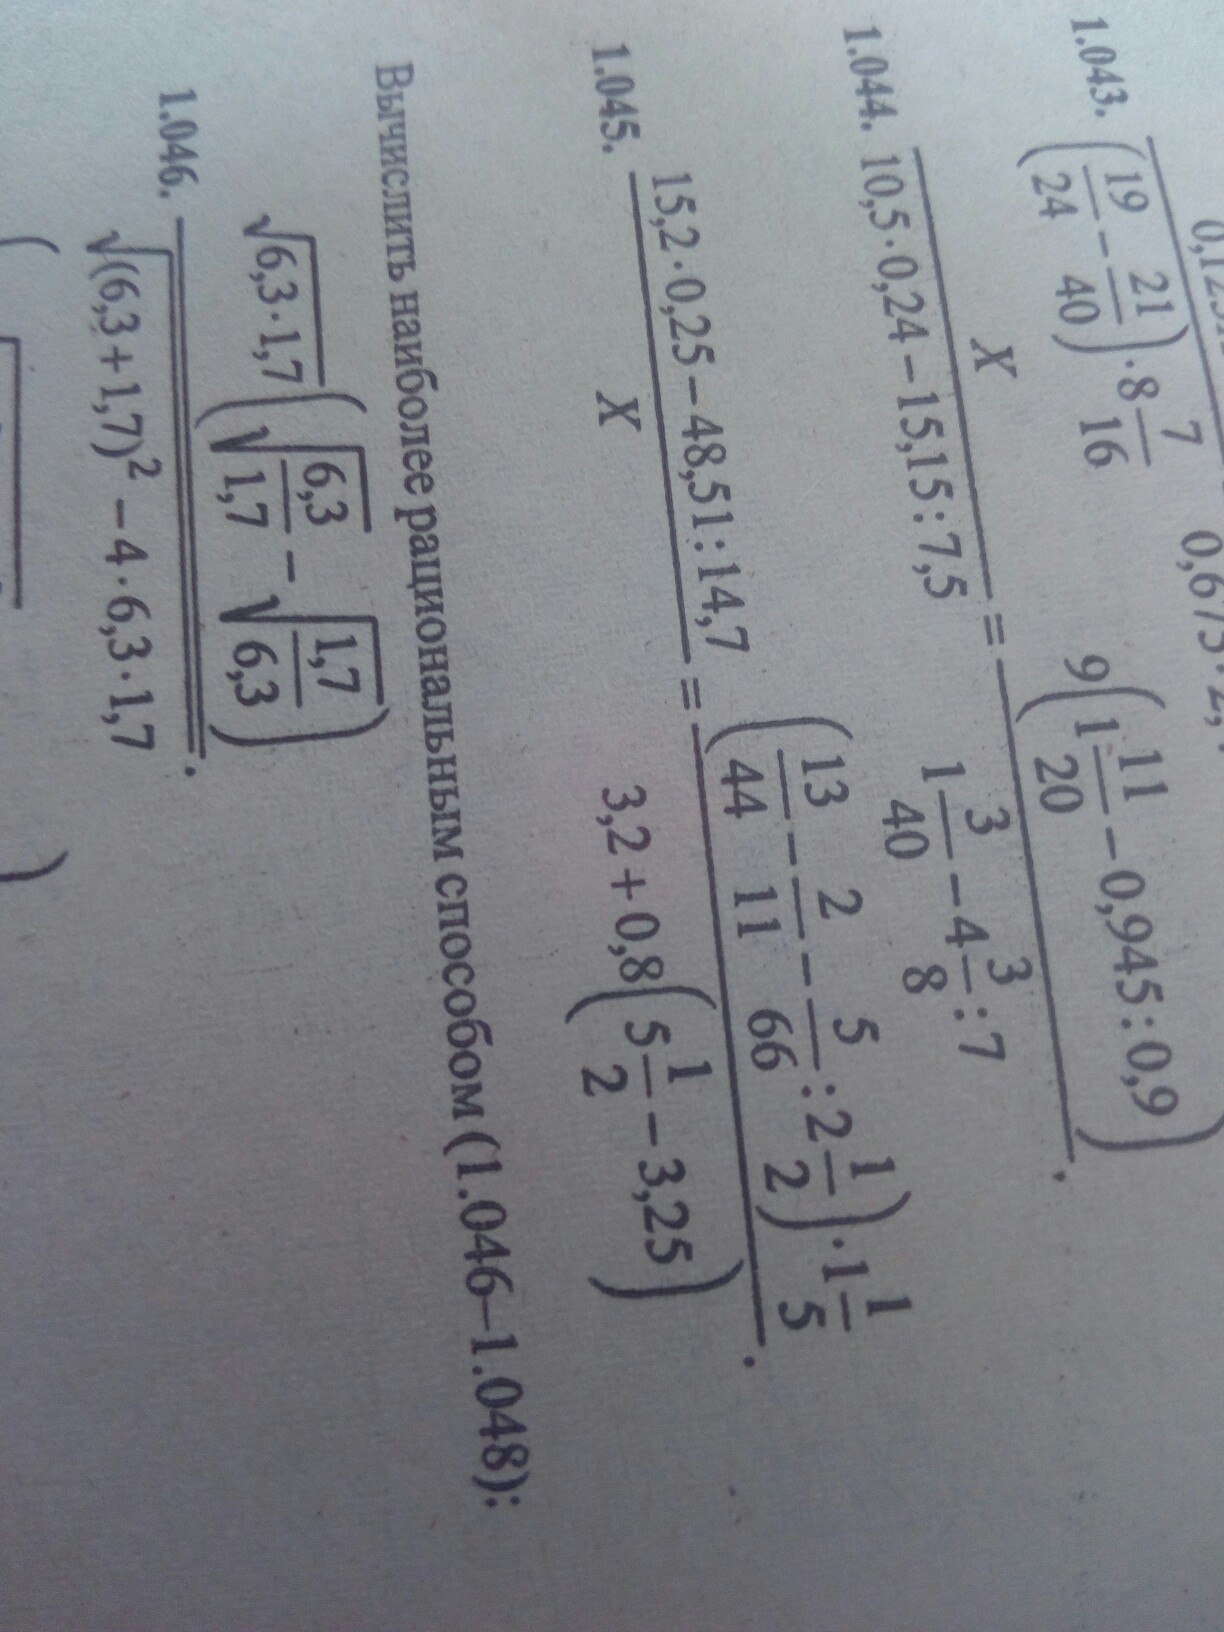 1.043.
0,675·2,
(19/24 − 21/40)·8 7/16
1.044. X/(10,5·0,24 − 15,15:7,5) = 9(1 11/20 − 0,945:0,9)/(1 3/40 − 4 3/8:7).
1.045. (15,2·0,25 − 48,51:14,7)/X = ((13/44 − 2/11 − 5/66:2 1/2)·1 1/5)/(3,2 + 0,8(5 1/2 − 3,25)).
Вычислить наиболее рациональным способом (1.046–1.048):
1.046. √(6,3·1,7)(√(6,3/1,7) − √(1,7/6,3))/√((6,3+1,7)² − 4·6,3·1,7).